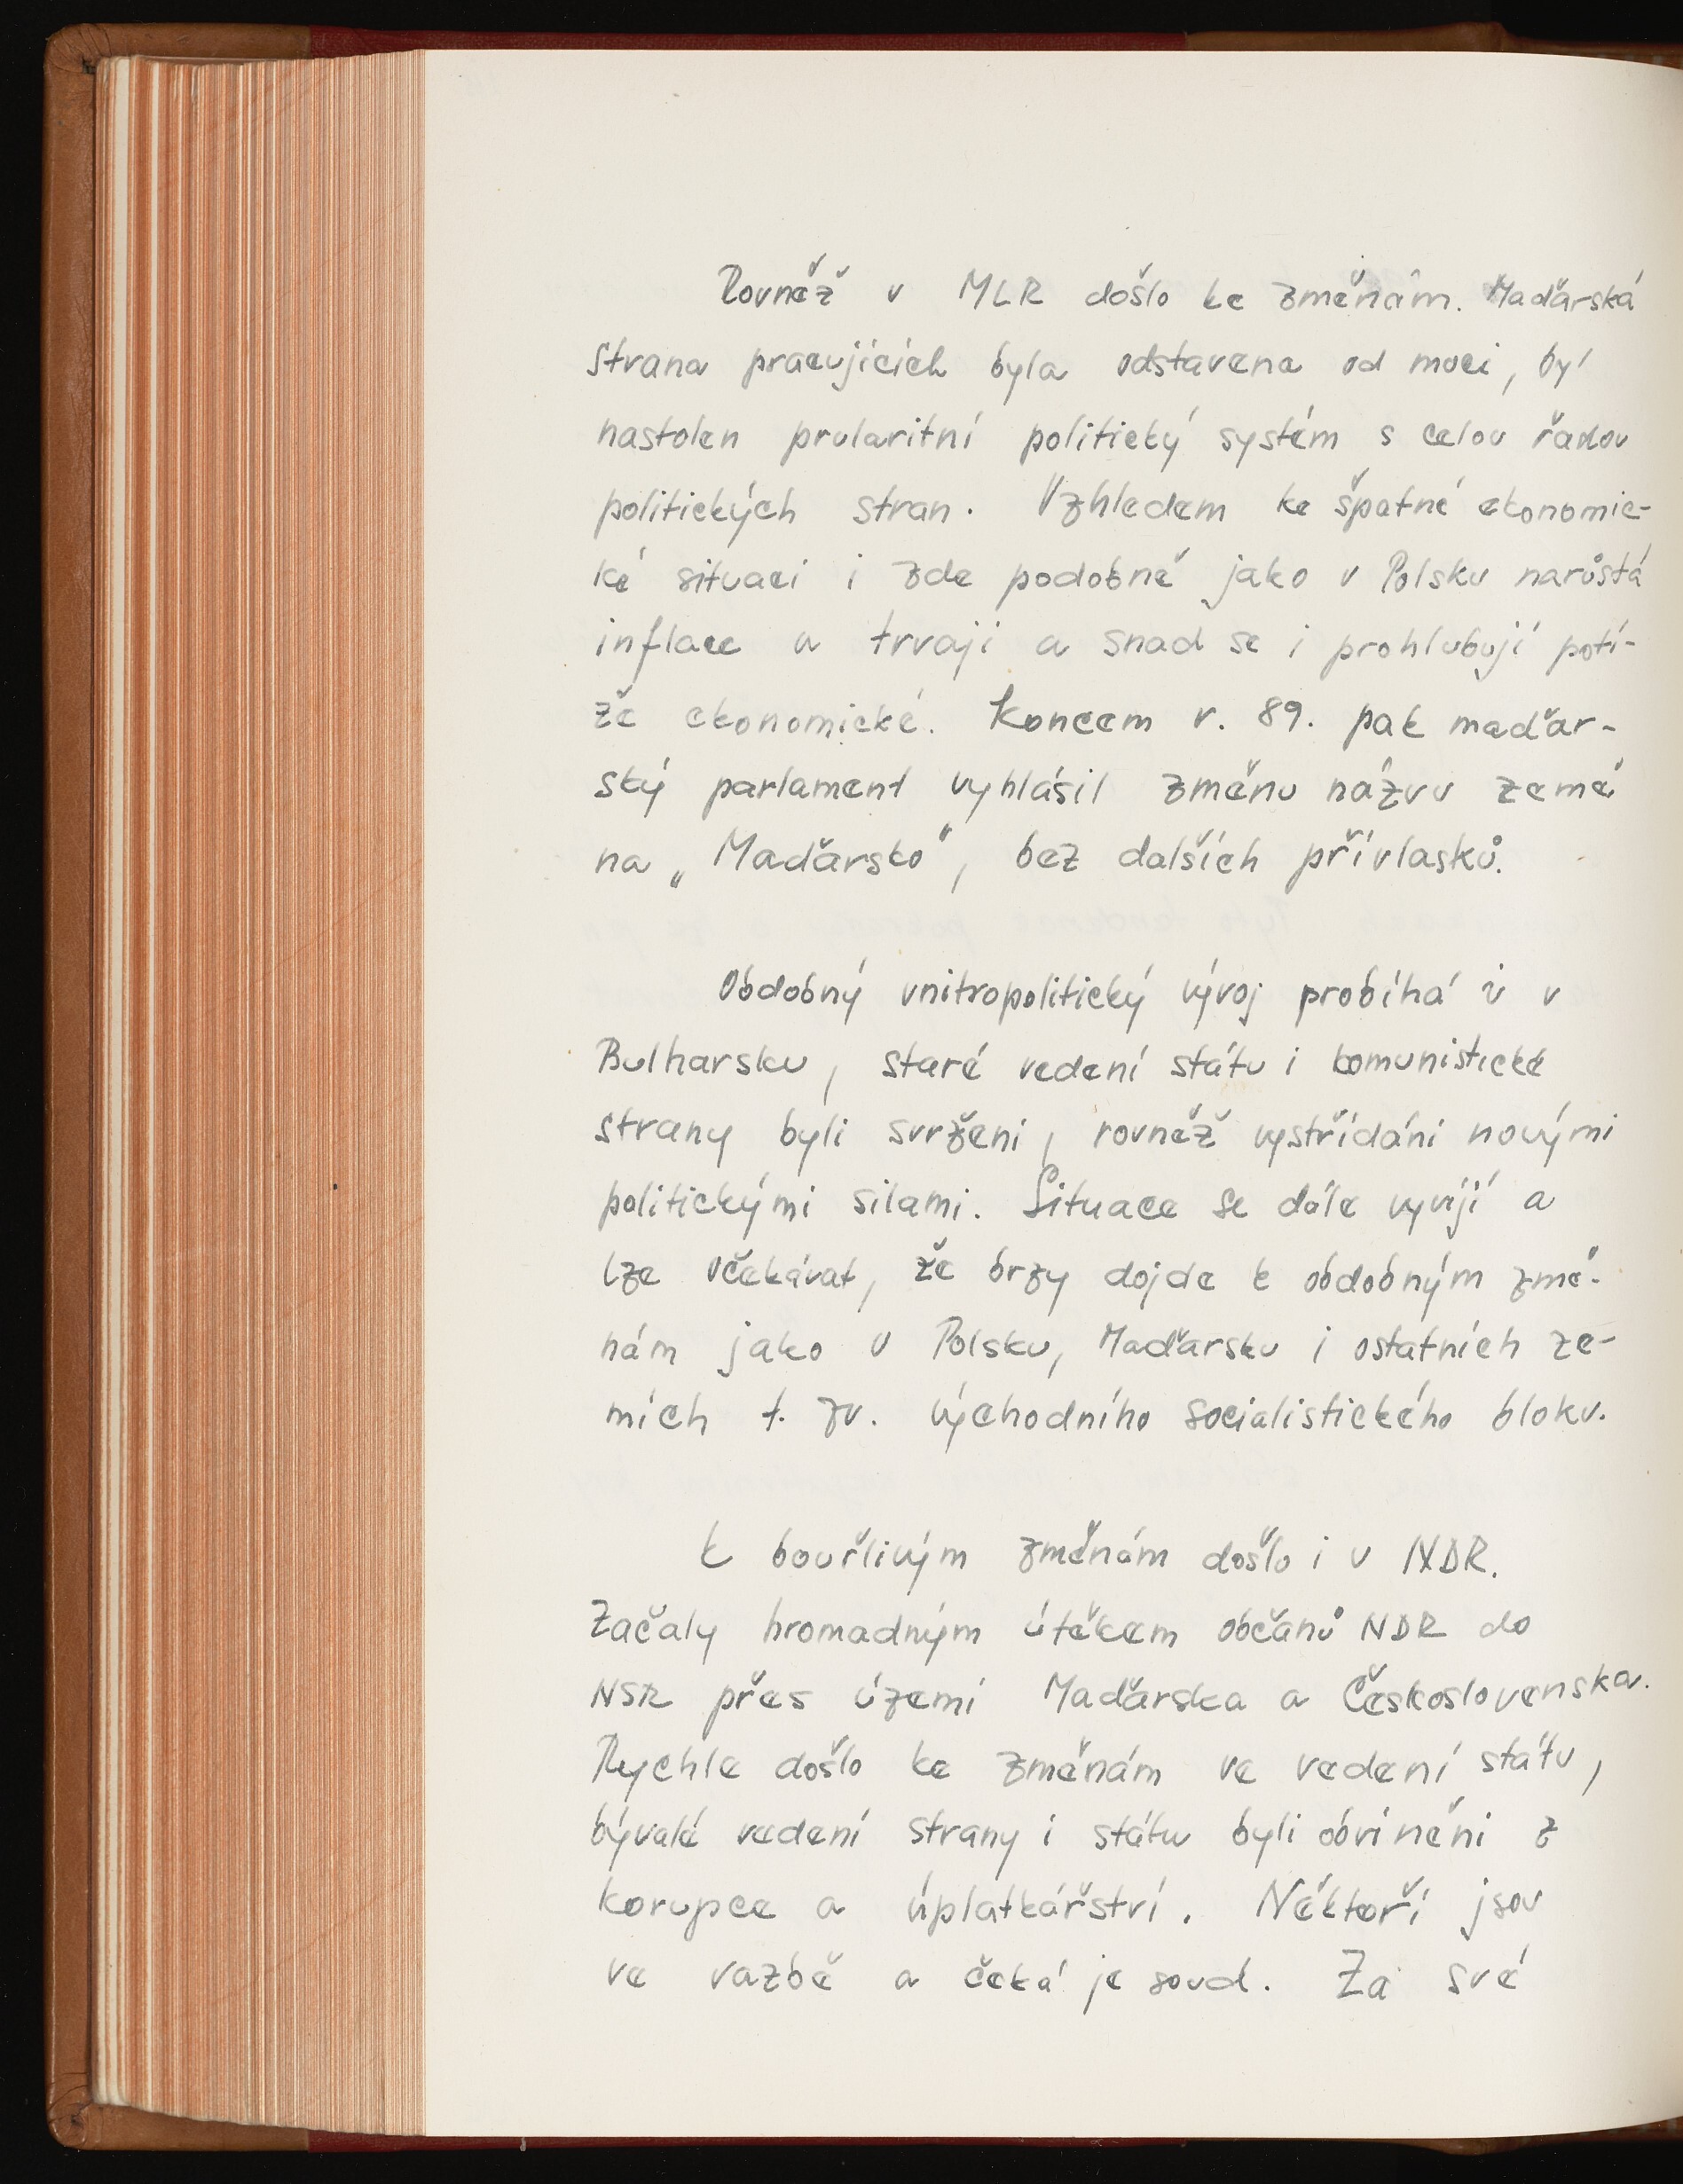 Rovněž v MLR došlo ke změnám. Maďarská
strana pracujících byla odstavena od moci, byl
nastolen prularitní politický systém s celou řadou
politických stran. Vzhledem ke špatné ekonomic-
ké situaci i zde podobně jako v Polsku narůstá
inflace a trvají a snad se i prohlubují potí-
že ekonomické. Koncem r. 89. pak maďar-
ský parlament vyhlásil změnu názvu země
na „Maďarsko“, bez dalších přívlasků.
Obdobný vnitropolitický vývoj probíhá i v
Bulharsku, staré vedení státu i komunistické
strany byli svrženi, rovněž vystřídáni novými
politickými silami. Situace se dále vyvíjí a
lze očekávat, že brzy dojde k obdobným změ-
nám jako v Polsku, Maďarsku i ostatních ze-
mích t. zv. východního socialistického bloku.
K bouřlivým změnám došlo i v NDR.
Začaly hromadným útěkem občanů NDR do
NSR přes území Maďarska a Československa.
Rychle došlo ke změnám ve vedení státu,
bývalé vedení strany i státu byli obviněni z
korupce a úplatkářství. Někteří jsou
ve vazbě a čeká je soud. Za své